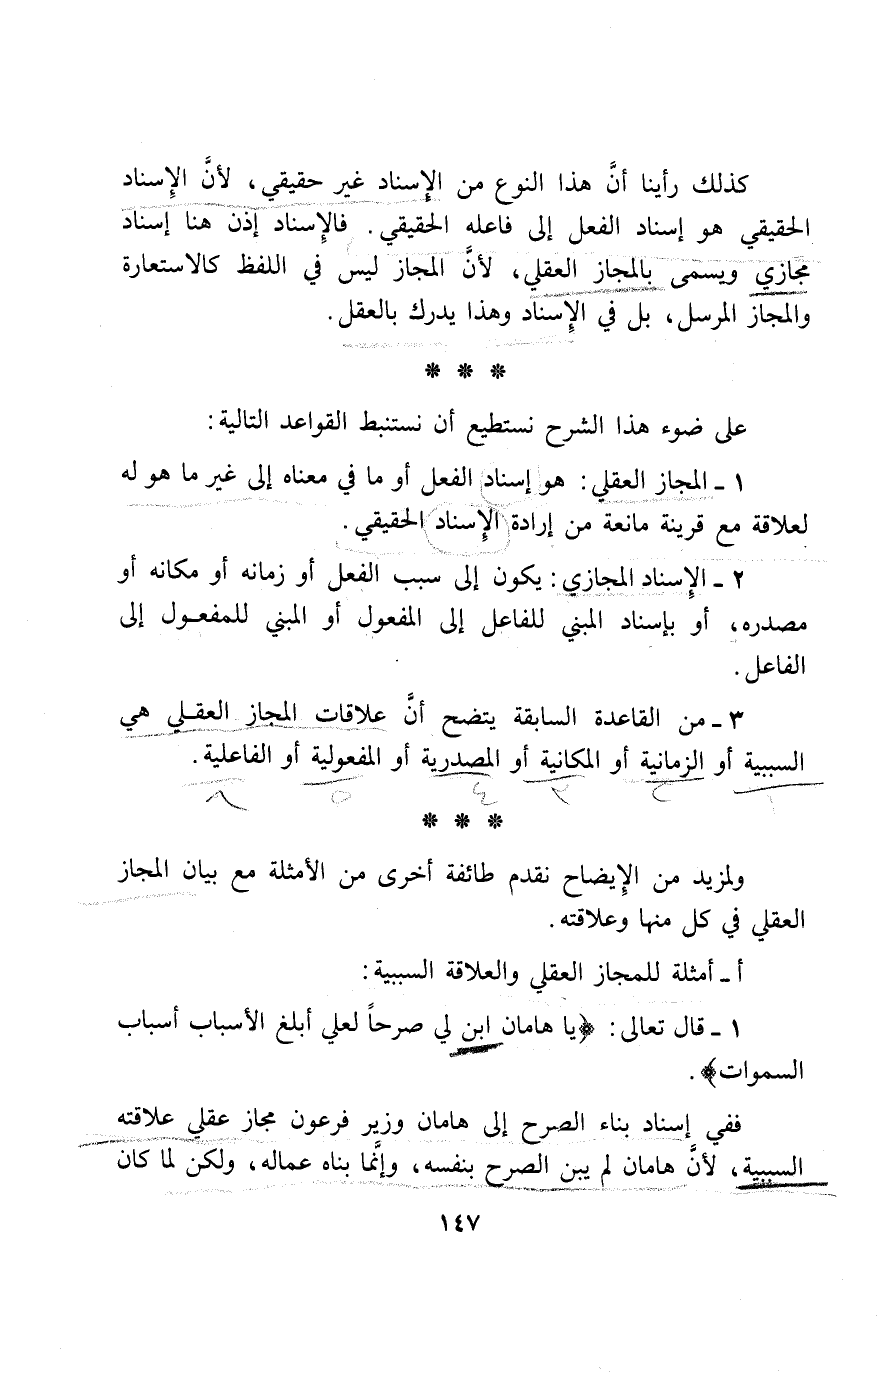 كذلك رأينا أنَّ هذا النوع من الإسناد غير حقيقي، لأنَّ الإسناد
الحقيقي هو إسناد الفعل إلى فاعله الحقيقي. فالإسناد إذن هنا إسناد
مجازي ويسمى بالمجاز العقلي، لأنَّ المجاز ليس في اللفظ كالاستعارة
والمجاز المرسل، بل في الإسناد وهذا يدرك بالعقل.
* * *
على ضوء هذا الشرح نستطيع أن نستنبط القواعد التالية:
١ - المجاز العقلي: هو إسناد الفعل أو ما في معناه إلى غير ما هو له
لعلاقة مع قرينة مانعة من إرادة الإسناد الحقيقي.
٢ - الإسناد المجازي: يكون إلى سبب الفعل أو زمانه أو مكانه أو
مصدره، أو بإسناد المبني للفاعل إلى المفعول أو المبني للمفعول إلى
الفاعل.
٣ - من القاعدة السابقة يتضح أنَّ علاقات المجاز العقلي هي
السببية أو الزمانية أو المكانية أو المصدرية أو المفعولية أو الفاعلية.
* * *
ولمزيد من الإيضاح نقدم طائفة أخرى من الأمثلة مع بيان المجاز
العقلي في كل منها وعلاقته.
أ - أمثلة للمجاز العقلي والعلاقة السببية:
١ - قال تعالى: ﴿يا هامان ابن لي صرحاً لعلي أبلغ الأسباب أسباب
السموات﴾.
ففي إسناد بناء الصرح إلى هامان وزير فرعون مجاز عقلي علاقته
السببية، لأنَّ هامان لم يبن الصرح بنفسه، وإنَّما بناه عماله، ولكن لما كان
١٤٧